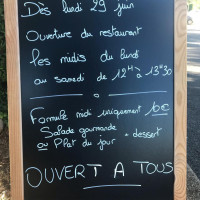 Dès lundi 29 juin
Ouverture du restaurant
les midis du lundi
au samedi de 12H à 13H30
Formule midi uniquement
Salade gourmande
ou Plat du jour + dessert
OUVERT A TOUS